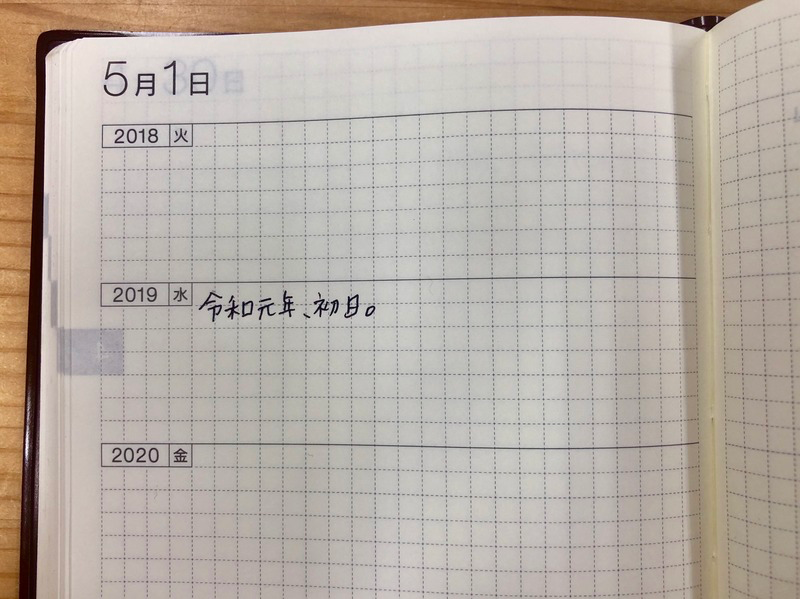 5月1日
2018 火
2019 水 令和元年、初日。
2020 金